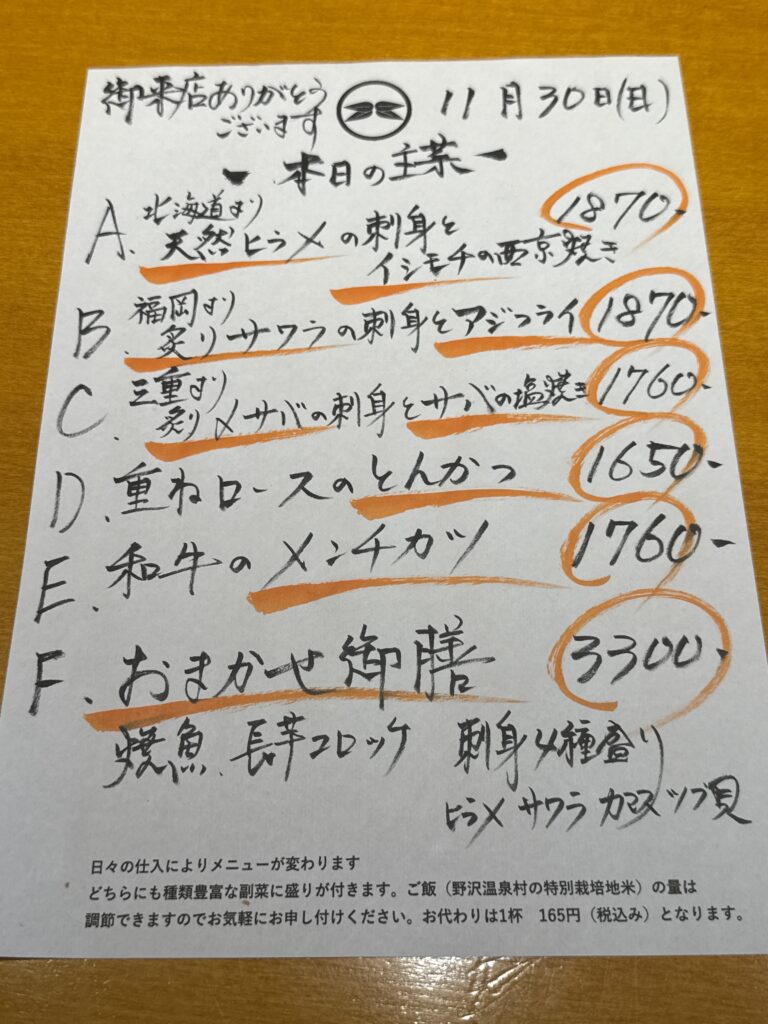 御来店ありがとう
ございます
11月30日(日)
本日の主菜
A. 北海道より 1870-
天然ヒラメの刺身と
イシモチの西京焼き
B. 福岡より
炙りサワラの刺身とアジフライ 1870-
C. 三重より
炙〆サバの刺身とサバの塩焼き 1760-
D. 重ねロースのとんかつ 1650-
E. 和牛のメンチカツ 1760-
F. おまかせ御膳 3300-
焼魚、長芋コロッケ 刺身4種盛り
ヒラメ サワラ カマス ツブ貝
日々の仕入によりメニューが変わります
どちらにも種類豊富な副菜に盛りが付きます。ご飯（野沢温泉村の特別栽培地米）の量は
調節できますのでお気軽にお申し付けください。お代わりは1杯 165円（税込み）となります。